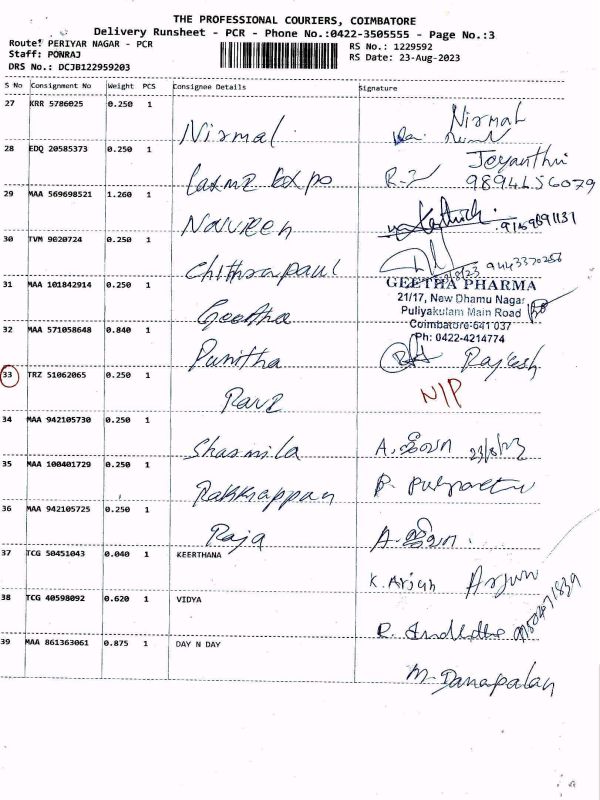 THE PROFESSIONAL COURIERS, COIMBATORE
Delivery Runsheet - PCR - Phone No.:0422-3505555 - Page No.:3
Route: PERIYAR NAGAR - PCR
RS No.: 1229592
Staff: PONRAJ
RS Date: 23-Aug-2023
DRS No.: DCJB122959203
S No Consignment No Weight PCS Consignee Details Signature
27 KRR 5786025 0.250 1
Nirmal Nirmal
28 EDQ 20585373 0.250 1
Laxmi Expo Jeyanthi
29 MAA 569698521 1.260 1
Naveen
30 TVM 9020724 0.250 1
Chithrapaul 9443370256
31 MAA 101842914 0.250 1
Geetha
GEETHA PHARMA
21/17, New Dhamu Nagar
Puliyakulam Main Road
Coimbatore-641 037
Ph: 0422-4214774
32 MAA 571058648 0.840 1
Punitha Rajesh
33 TRZ 51062065 0.250 1
Ravi N/P
34 MAA 942105730 0.250 1
Sharmila A. ஜீவா 23/8/23
35 MAA 100401729 0.250 1
Rakkappan P.
36 MAA 942105725 0.250 1
Raja A. ஜீவா.
37 TCG 50451043 0.040 1 KEERTHANA
K. Arjun Arjun
38 TCG 40598092 0.620 1 VIDYA
39 MAA 861363061 0.875 1 DAY N DAY
M. Danapalan